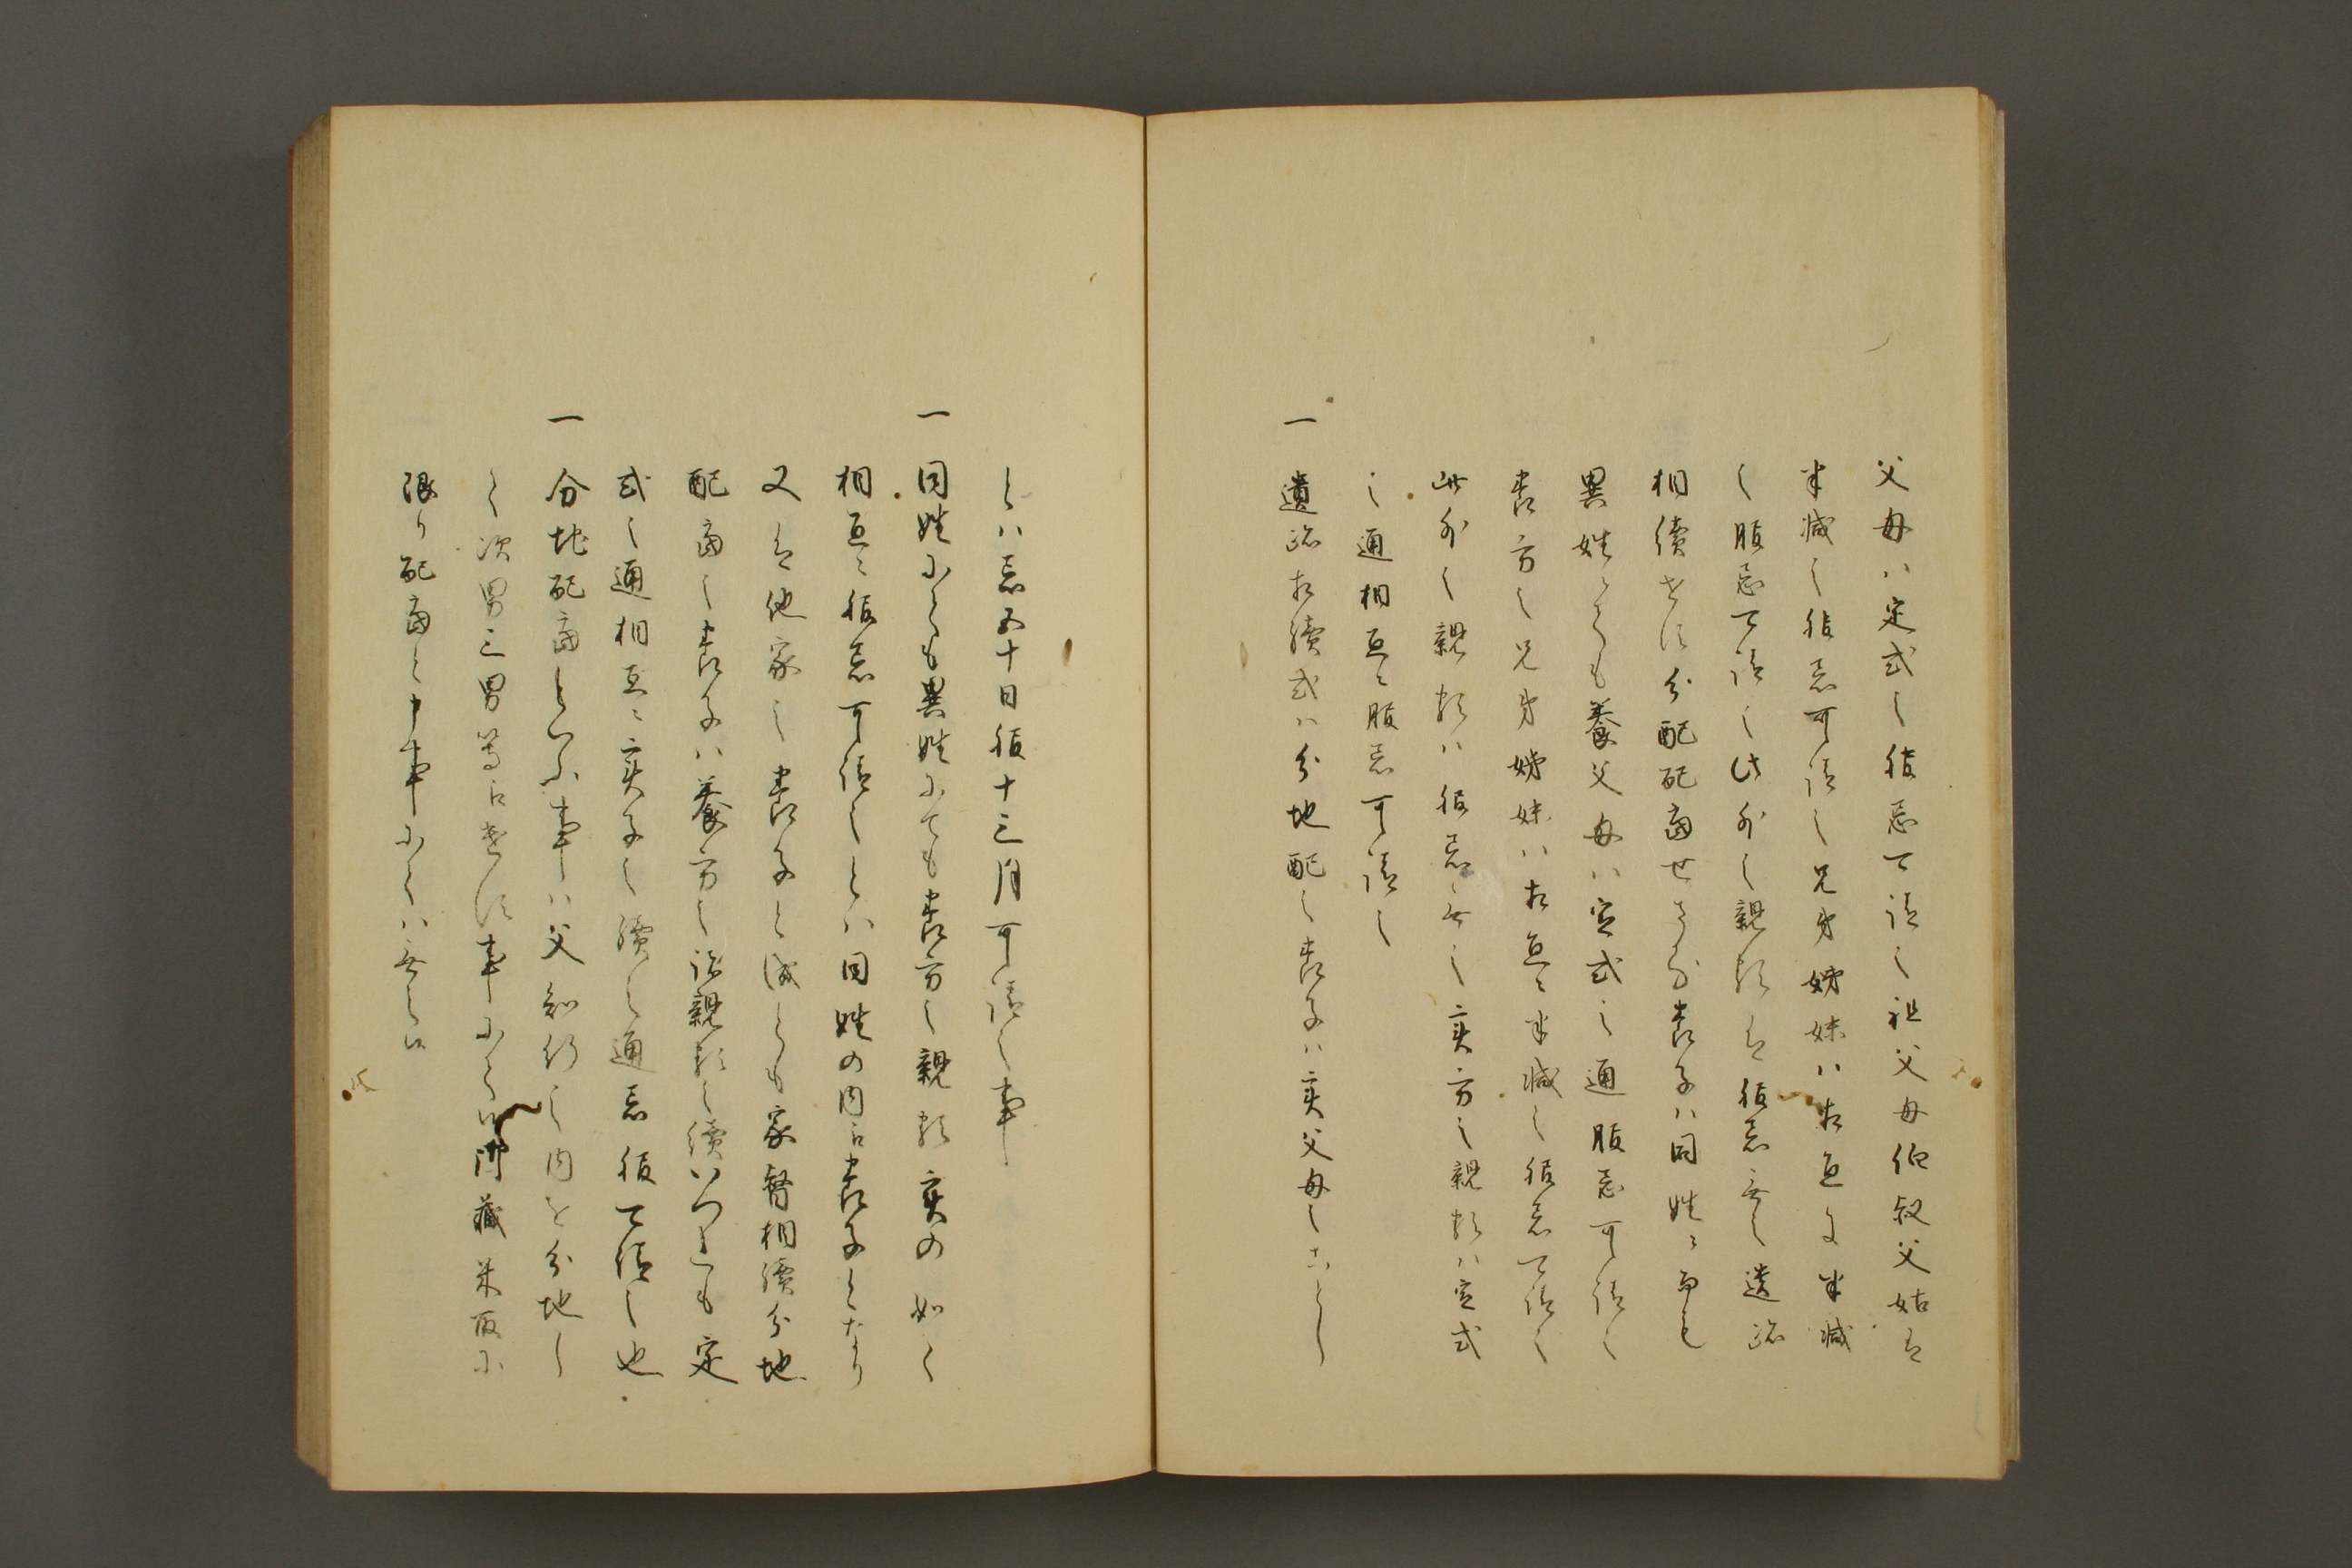 父母ハ定式之服忌可請之祖父母伯叔父姑は
半減之服忌可請之兄弟姉妹ハ相互に半減
之服忌可請之此外之親類は服忌無之遺跡
相続せす分配配当せさる養子ハ同姓ニ而も
異姓にても養父母ハ定式之通服忌可請之
養方之兄弟姉妹ハ相互ニ半減之服忌可請之
此外之親類ハ服忌無之実方之親類ハ定式
之通相互ニ服忌可請之
一 遺跡相続或ハ分地配之養子ハ実父母之ことし
とハ忌五十日服十三月可請之事
一 同姓にても異姓にても養方之親類実の如く
相互ニ服忌可請之とハ同姓の内ニ養子となり
又は他家之養子と成とも家督相続分地
配当之養子ハ養方之諸親類之続いつれも定
式之通相互ニ実子之続之通忌服可請之也
一 分地配当といふ事ハ父知行之内を分地し
て次男三男等に遣す事にて御蔵米取に
限り配当と申事にてハ無之候